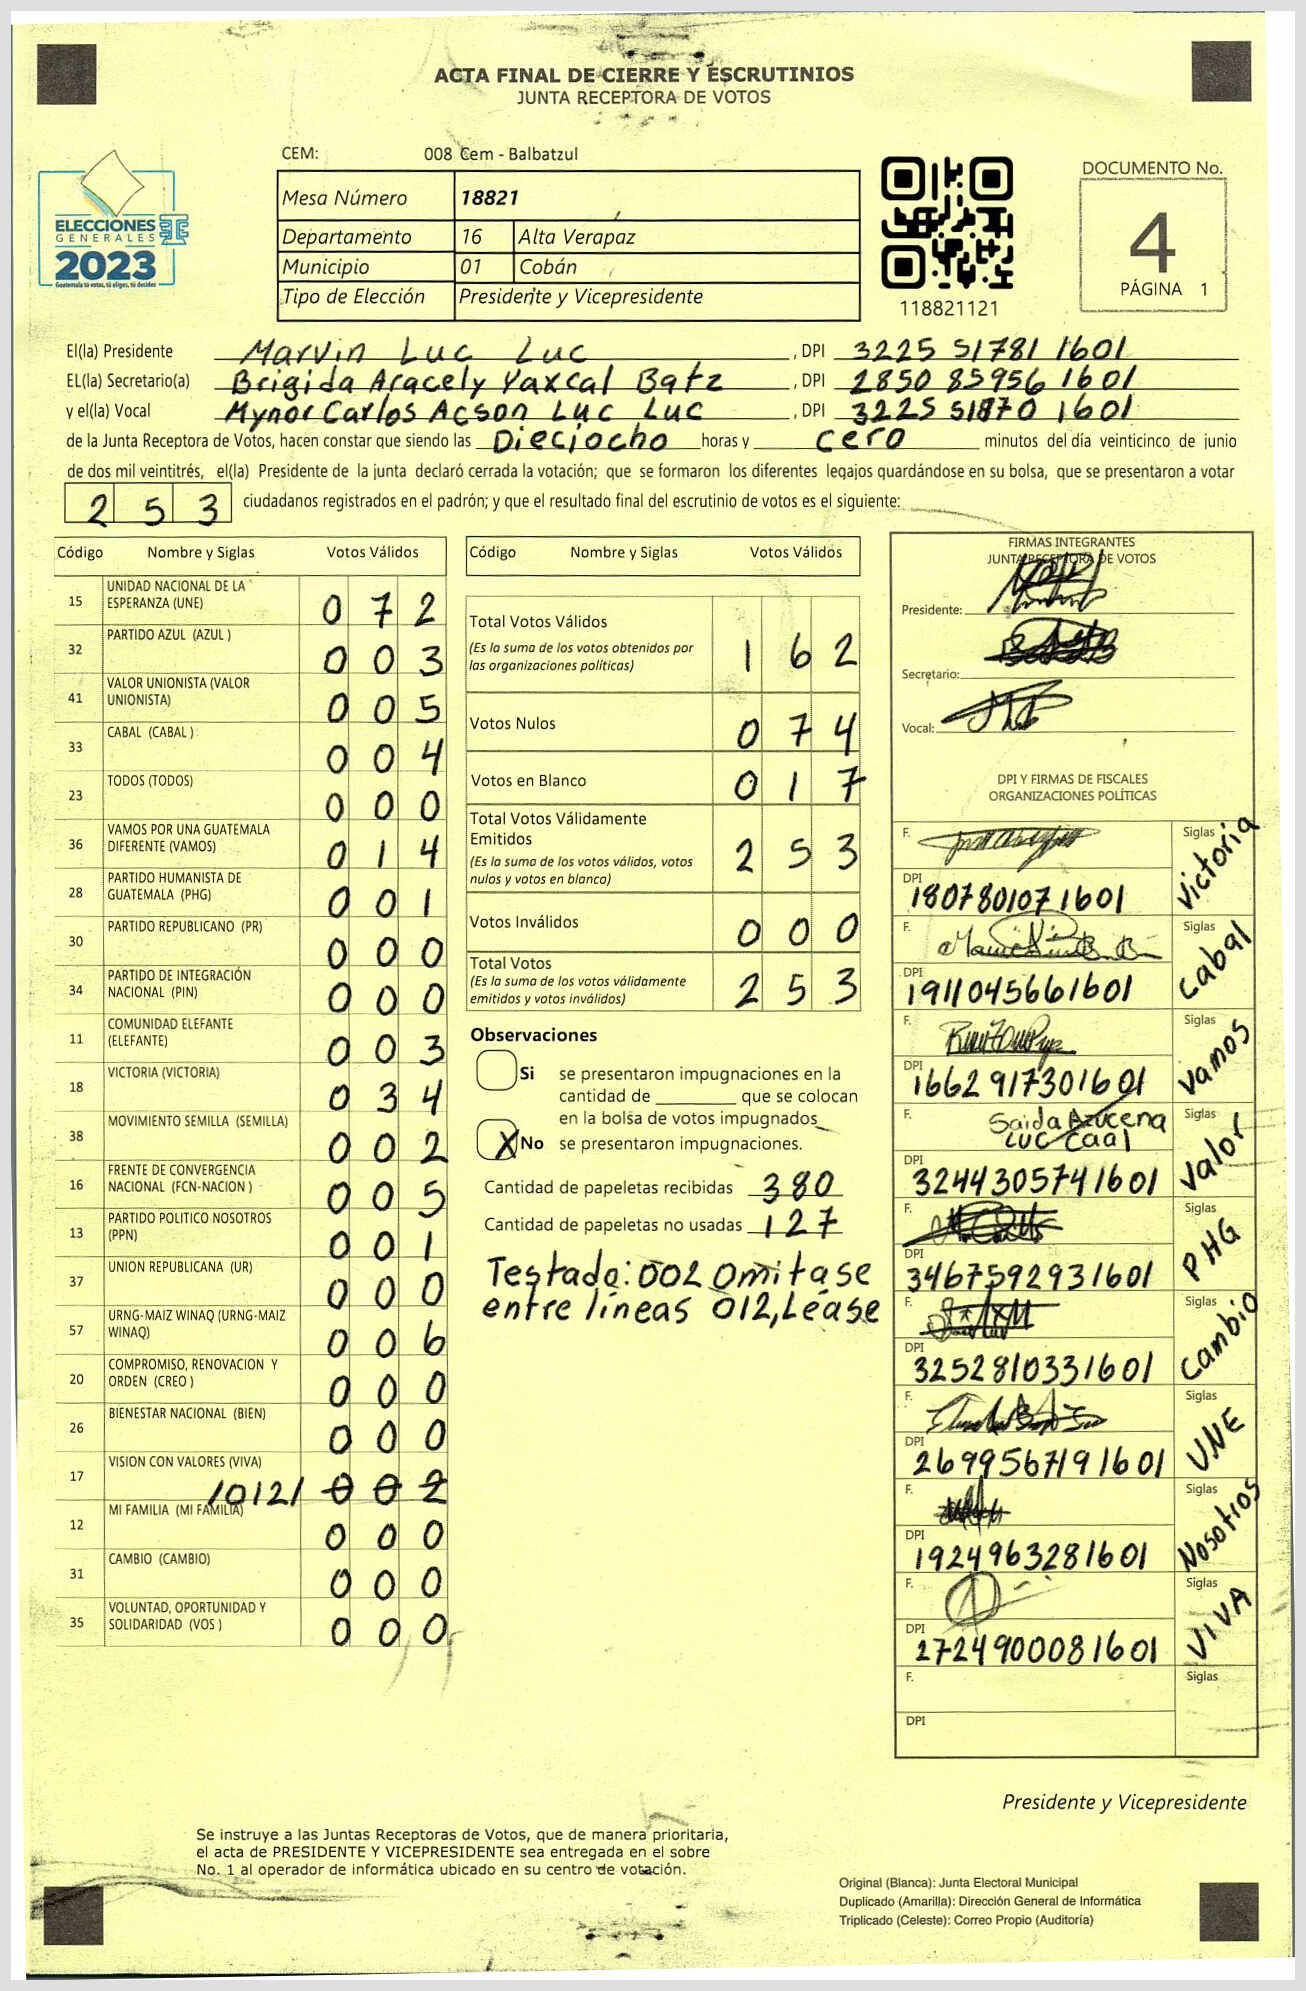 ACTA FINAL DE CIERRE Y ESCRUTINIOS
JUNTA RECEPTORA DE VOTOS
CEM: 008 Cem - Balbatzul
ELECCIONES
GENERALES
2023
Guatemala tú votas, tú eliges, tú decides
Mesa Número 18821
Departamento 16 Alta Verapaz
Municipio 01 Cobán
Tipo de Elección Presidente y Vicepresidente
118821121
DOCUMENTO No.
4
PÁGINA 1
El(la) Presidente Marvin Luc Luc , DPI 3225 51781 1601
EL(la) Secretario(a) Brigida Aracely Yaxcal Batz , DPI 2850 85956 1601
y el(la) Vocal Mynor Carlos Acson Luc Luc , DPI 3225 51870 1601
de la Junta Receptora de Votos, hacen constar que siendo las Dieciocho horas y cero minutos del día veinticinco de junio
de dos mil veintitrés, el(la) Presidente de la junta declaró cerrada la votación; que se formaron los diferentes legajos quardándose en su bolsa, que se presentaron a votar
253 ciudadanos registrados en el padrón; y que el resultado final del escrutinio de votos es el siguiente:
Código Nombre y Siglas Votos Válidos
15 UNIDAD NACIONAL DE LA
ESPERANZA (UNE) 072
32 PARTIDO AZUL (AZUL ) 003
41 VALOR UNIONISTA (VALOR
UNIONISTA) 005
33 CABAL (CABAL ) 004
23 TODOS (TODOS) 000
36 VAMOS POR UNA GUATEMALA
DIFERENTE (VAMOS) 014
28 PARTIDO HUMANISTA DE
GUATEMALA (PHG) 001
30 PARTIDO REPUBLICANO (PR) 000
34 PARTIDO DE INTEGRACIÓN
NACIONAL (PIN) 000
11 COMUNIDAD ELEFANTE
(ELEFANTE) 003
18 VICTORIA (VICTORIA) 034
38 MOVIMIENTO SEMILLA (SEMILLA) 002
16 FRENTE DE CONVERGENCIA
NACIONAL (FCN-NACION ) 005
13 PARTIDO POLITICO NOSOTROS
(PPN) 001
37 UNION REPUBLICANA (UR) 000
57 URNG-MAIZ WINAQ (URNG-MAIZ
WINAQ) 006
20 COMPROMISO, RENOVACION Y
ORDEN (CREO ) 000
26 BIENESTAR NACIONAL (BIEN) 000
17 VISION CON VALORES (VIVA) /012/ 002
12 MI FAMILIA (MI FAMILIA) 000
31 CAMBIO (CAMBIO) 000
35 VOLUNTAD, OPORTUNIDAD Y
SOLIDARIDAD (VOS ) 000
Código Nombre y Siglas Votos Válidos
Total Votos Válidos
(Es la suma de los votos obtenidos por
las organizaciones políticas) 162
Votos Nulos 074
Votos en Blanco 017
Total Votos Válidamente
Emitidos
(Es la suma de los votos válidos, votos
nulos y votos en blanco) 253
Votos Inválidos 000
Total Votos
(Es la suma de los votos válidamente
emitidos y votos inválidos) 253
Observaciones
Si se presentaron impugnaciones en la
cantidad de ________ que se colocan
en la bolsa de votos impugnados
X No se presentaron impugnaciones.
Cantidad de papeletas recibidas 380
Cantidad de papeletas no usadas 127
Testado: 002 Omitase
entre líneas 012, Léase
FIRMAS INTEGRANTES
JUNTA RECEPTORA DE VOTOS
Presidente:
Secretario:
Vocal:
DPI Y FIRMAS DE FISCALES
ORGANIZACIONES POLÍTICAS
F. Siglas Victoria
DPI 1807801071601
F. Siglas Cabal
DPI 1911045661601
F. Siglas Vamos
DPI 1662917301601
F. Saida Azucena Siglas Valor
Luc Caal
DPI 3244305741601
F. Siglas PHG
DPI 3467592931601
F. Siglas Cambio
DPI 3252810331601
F. Siglas UNE
DPI 2699567191601
F. Siglas Nosotros
DPI 1924963281601
F. Siglas VIVA
DPI 2724900081601
F. Siglas
DPI
Presidente y Vicepresidente
Se instruye a las Juntas Receptoras de Votos, que de manera prioritaria,
el acta de PRESIDENTE Y VICEPRESIDENTE sea entregada en el sobre
No. 1 al operador de informática ubicado en su centro de votación.
Original (Blanca): Junta Electoral Municipal
Duplicado (Amarilla): Dirección General de Informática
Triplicado (Celeste): Correo Propio (Auditoría)